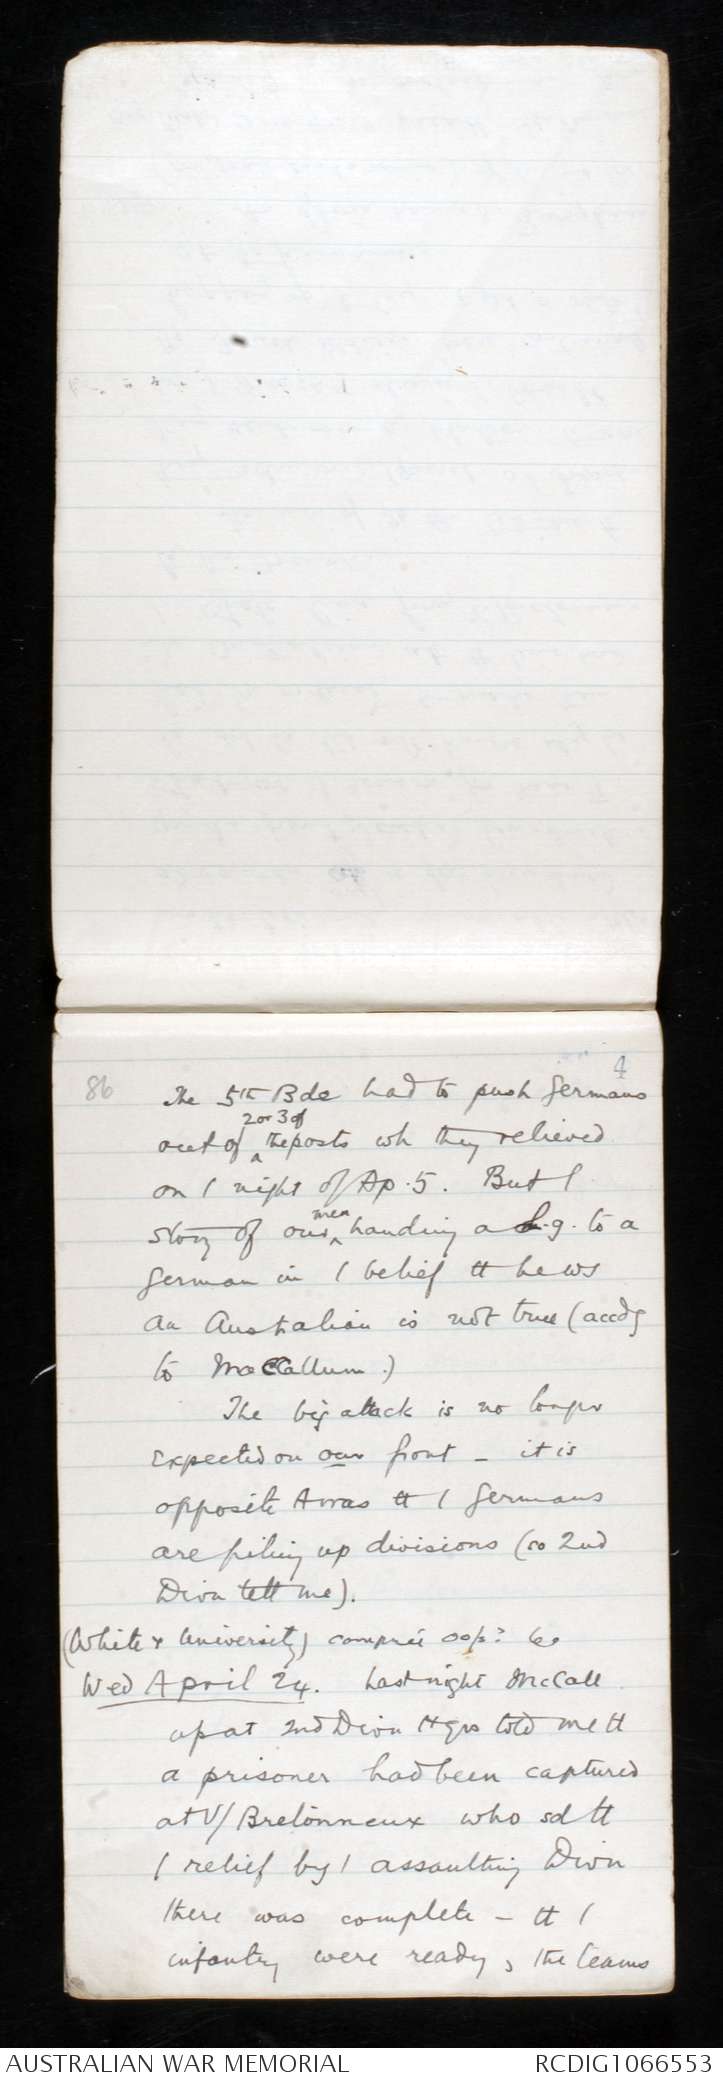 86
4
The 5th Bde had to push Germans
2 or 3 of
out of ^ the posts wh they relieved
on / night of Ap. 5. But /
men
story of our ^ handing a L.g. to a
German in / belief tt he ws
an Australian is not true (accdg
to MacCallum.)
The big attack is no longer
expected on our front - it is
opposite Arras tt / Germans
are piling up divisions (so 2nd
Divn tell me).
(White & University) compris
Wed April 24. Last night McCall
up at 2nd Divn Hqrs told me tt
a prisoner had been captured
at V/Bretonneux who sd tt
/ relief by / assaulting Divn
there was complete - tt /
infantry were ready, the teams
AUSTRALIAN WAR MEMORIAL
RCDIG1066553